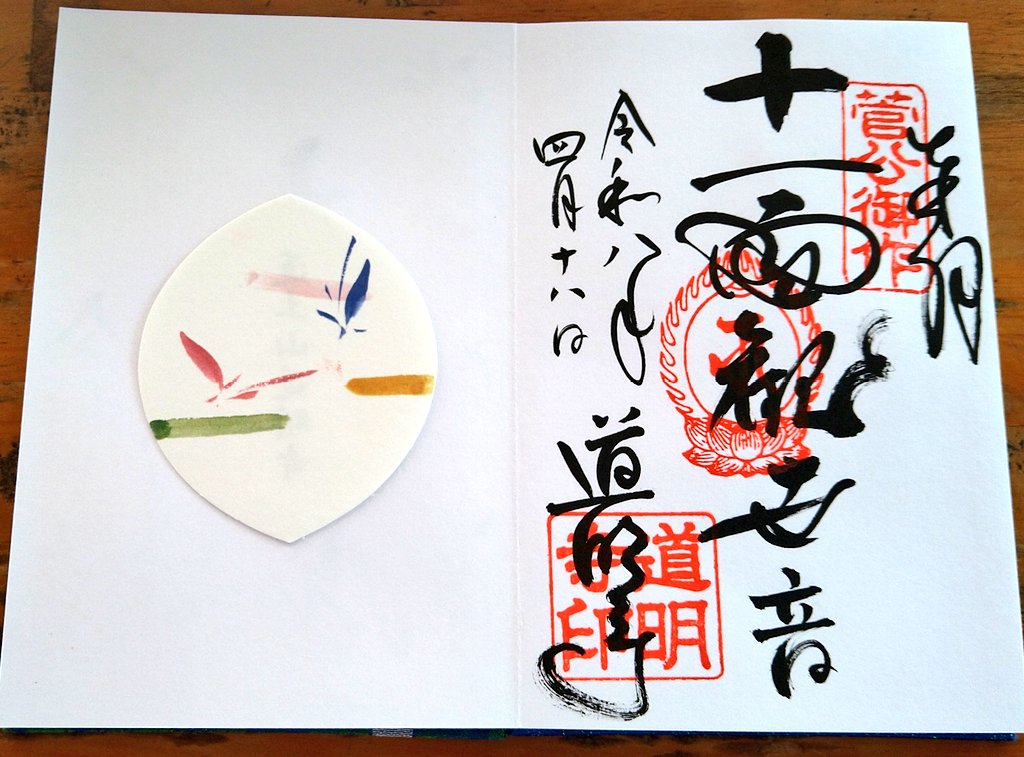 奉拝
菅公御作
十一面観世音
令和八年
四月十八日
道明寺
道明
寺印